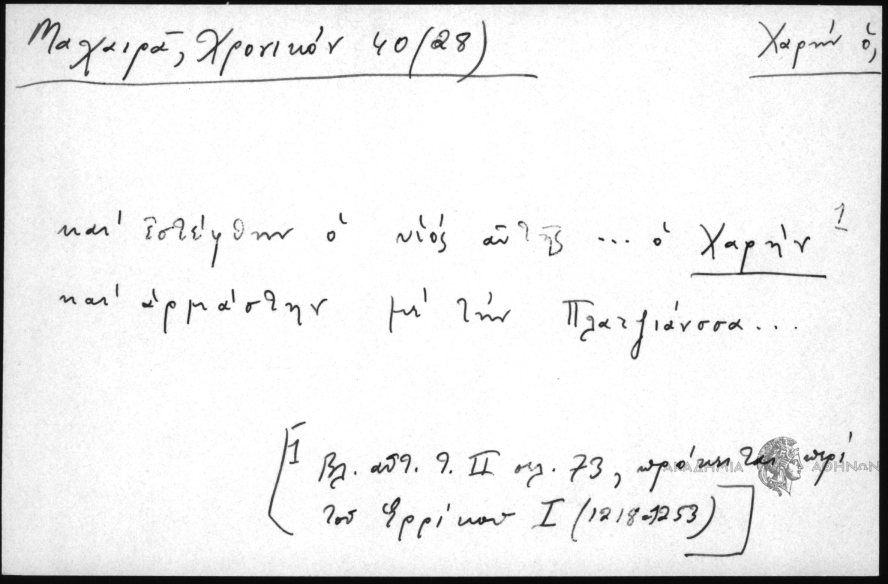 Μαχαιρᾶ, Χρονικόν 40 (28)
Χαρήν ὁ,
καί ἐστέφθην ὁ υἱός αὐτῆς ... ὁ Χαρήν 1
καί ἁρμάστην μέ τήν Πλατζιάνσσα...
[1 Βλ. αὐτ. τ. II σελ. 73, πρόκειται περί
τοῦ Ἑρρίκου I (1218-1253)]
ΑΚΑΔΗΜΙΑ ΑΘΗΝΩΝ